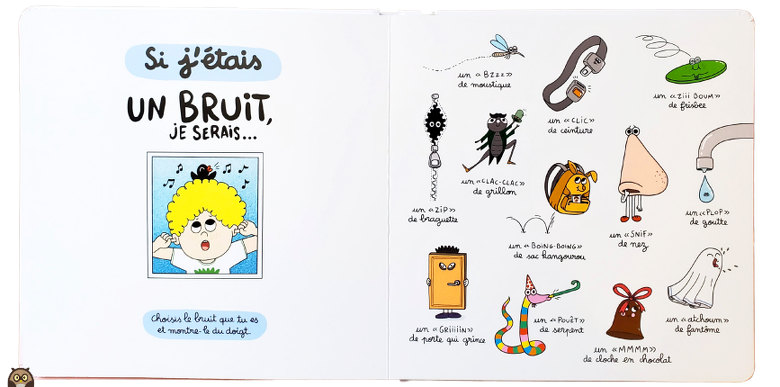 Si j'étais
UN BRUIT,
JE SERAIS...
Choisis le bruit que tu es
et montre-le du doigt.
un «BZZZ»
de moustique
un «CLIC»
de ceinture
un «ZIII DOUM»
de frisbee
un «ZIP»
de braguette
un «CLAC-CLAC»
de grillon
un «BOING-BOING»
de sac kangourou
un «SNIF»
de nez
un «PLOP»
de goutte
un «GRIIIIIN»
de porte qui grince
un «POUÊT»
de serpent
un «MMMM»
de cloche en chocolat
un «atchoum»
de fantôme